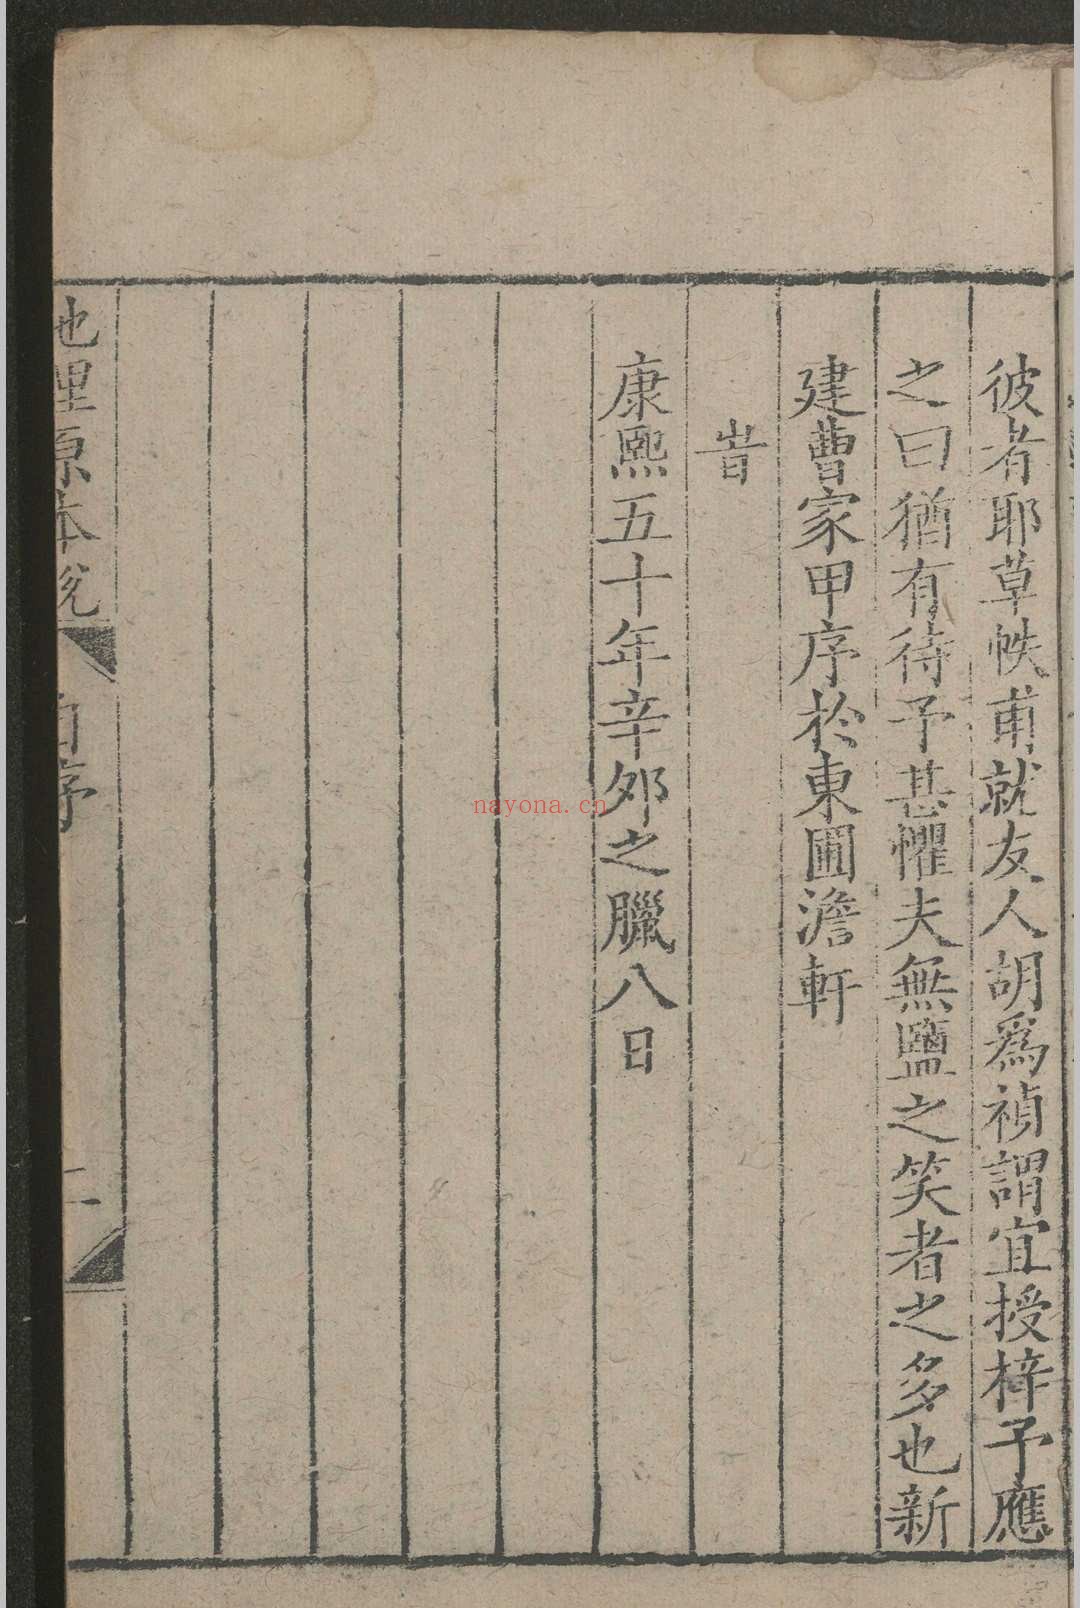 彼者耶草帙甫就友人胡爲禎謂宜授梓予應
之曰猶有待予甚懼夫無鹽之笑者之多也新
建曹家甲序於東圃澹軒
旹
康熙五十年辛夘之臘八日
地理原本說 自序 二
nayona.cn